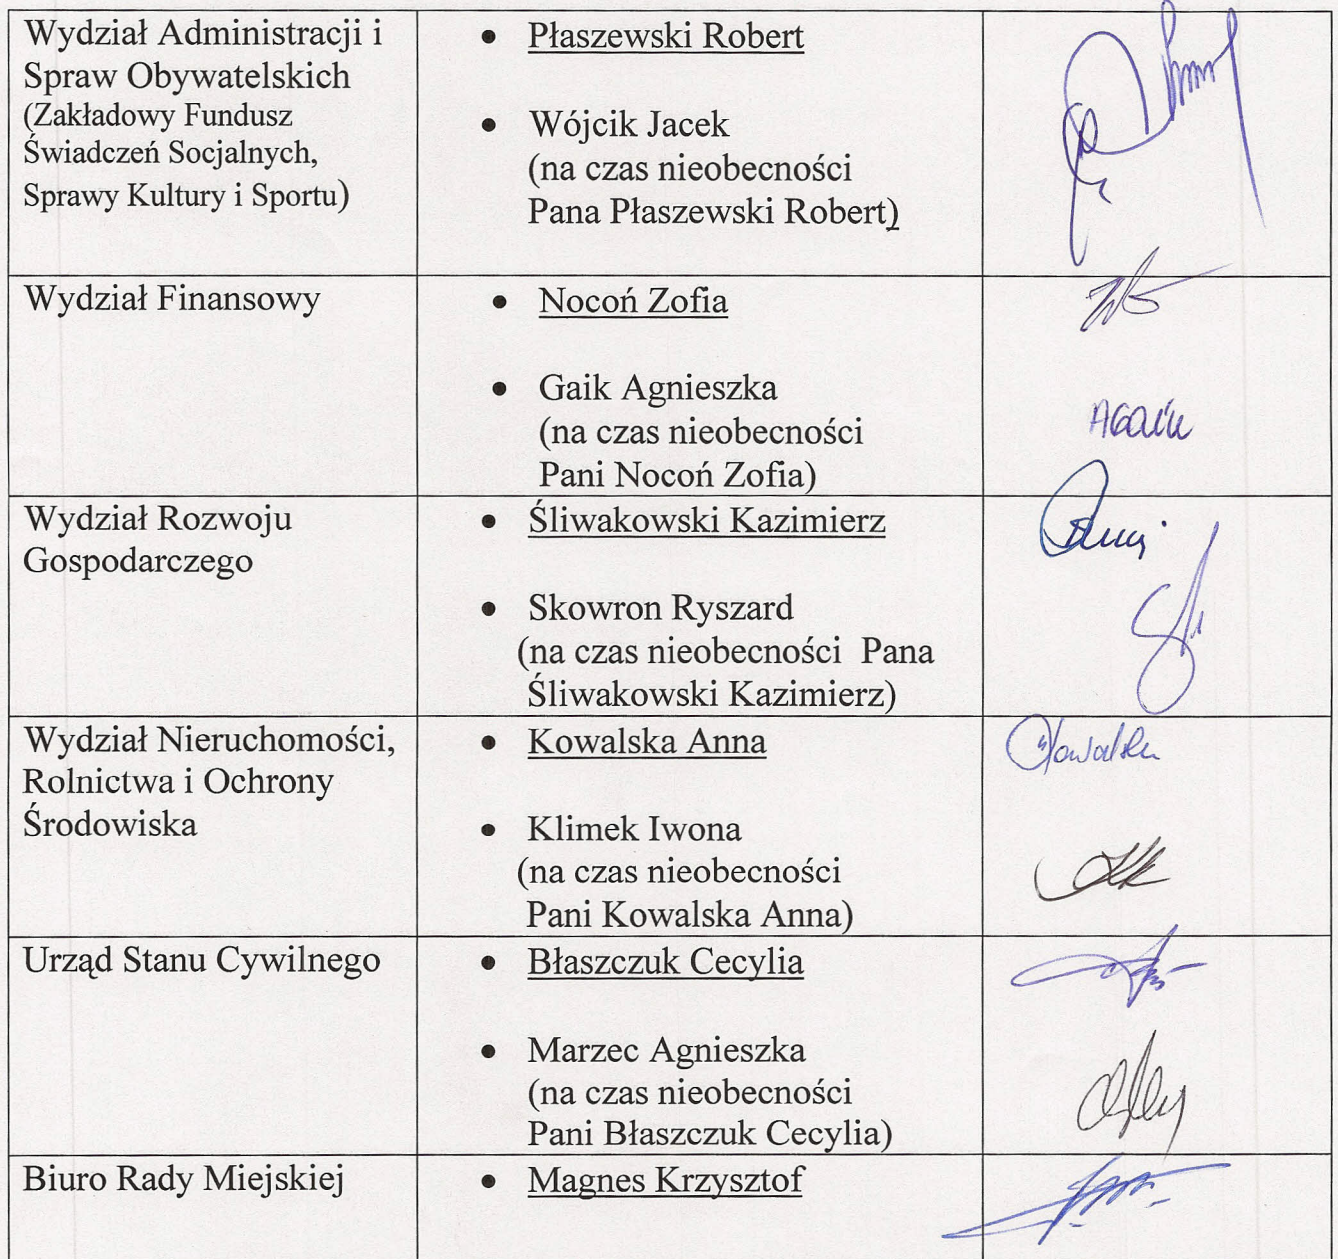 Wydział Administracji i
Spraw Obywatelskich
(Zakładowy Fundusz
Świadczeń Socjalnych,
Sprawy Kultury i Sportu)
• Płaszewski Robert
• Wójcik Jacek
(na czas nieobecności
Pana Płaszewski Robert)
Wydział Finansowy
• Nocoń Zofia
• Gaik Agnieszka
(na czas nieobecności
Pani Nocoń Zofia)
AGaik
Wydział Rozwoju
Gospodarczego
• Śliwakowski Kazimierz
• Skowron Ryszard
(na czas nieobecności Pana
Śliwakowski Kazimierz)
Wydział Nieruchomości,
Rolnictwa i Ochrony
Środowiska
• Kowalska Anna
• Klimek Iwona
(na czas nieobecności
Pani Kowalska Anna)
Kowalska
Urząd Stanu Cywilnego
• Błaszczuk Cecylia
• Marzec Agnieszka
(na czas nieobecności
Pani Błaszczuk Cecylia)
Biuro Rady Miejskiej
• Magnes Krzysztof